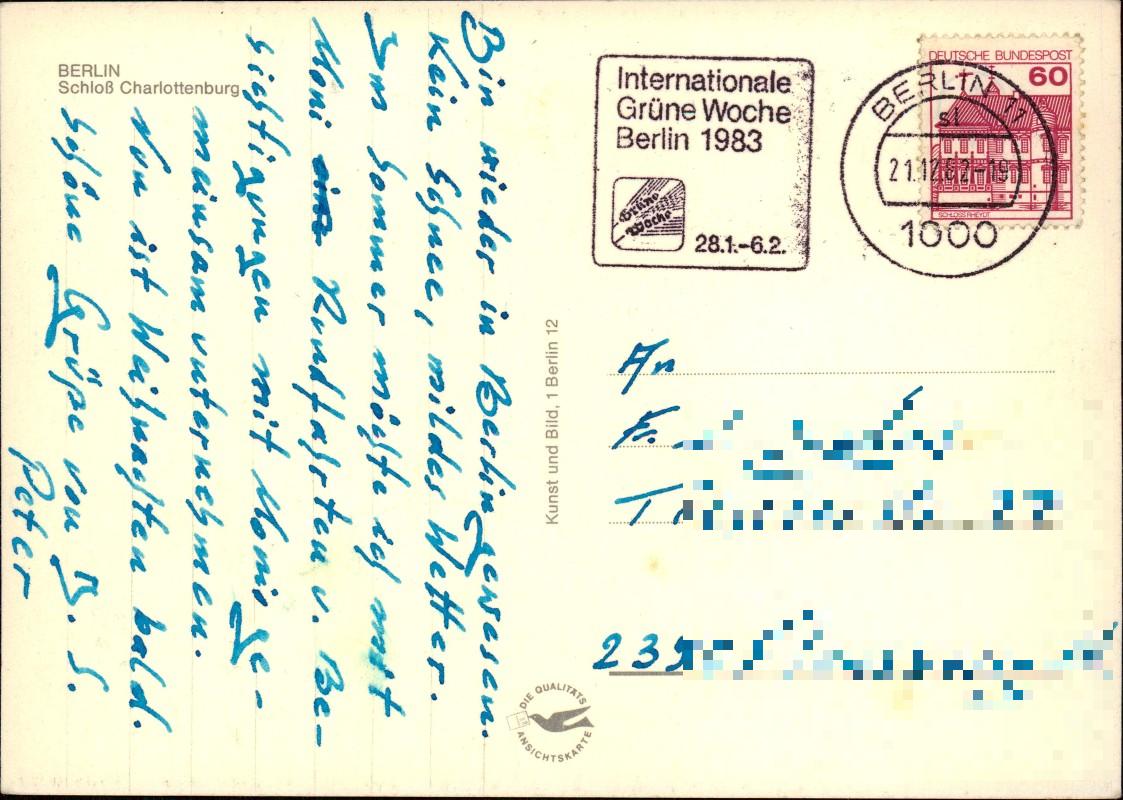 BERLIN
Schloß Charlottenburg
Bin wieder in Berlin gewesen.
Kein Schnee, mildes Wetter.
Im Sommer möchte ich mit
Moni Rundfahrten u. Be-
sichtigungen mit Moni ge-
meinsam unternehmen.
Nun ist Weihnachten bald.
Schöne Grüße von B. S.
Peter
Kunst und Bild, 1 Berlin 12
DIE QUALITÄTS
ANSICHTSKARTE
Internationale
Grüne Woche
Berlin 1983
Grüne
Woche
28.1.–6.2.
DEUTSCHE BUNDESPOST
60
SCHLOSS RHEYDT
BERLIN 11
sl
21.12.82-19
1000
An
Fr.
17
239